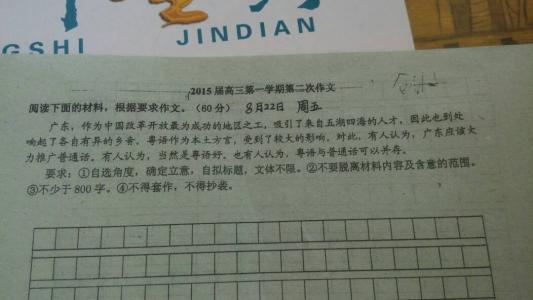 NGSHI JINDIAN
2015届高三第一学期第二次作文
阅读下面的材料，根据要求作文。（60分） 8月22日 周五
广东，作为中国改革开放最为成功的地区之工，吸引了来自五湖四海的人才，因此也到处
响起了各自有异的乡音。粤语作为本土方言，受到了较大的影响。对此，有人认为，广东应该大
力推广普通话。有人认为，当然是粤语好。也有人认为，粤语与普通话可以并存。
要求：①自选角度，确定立意，自拟标题，文体不限。②不要脱离材料内容及含意的范围。
③不少于800字。④不得套作，不得抄袭。